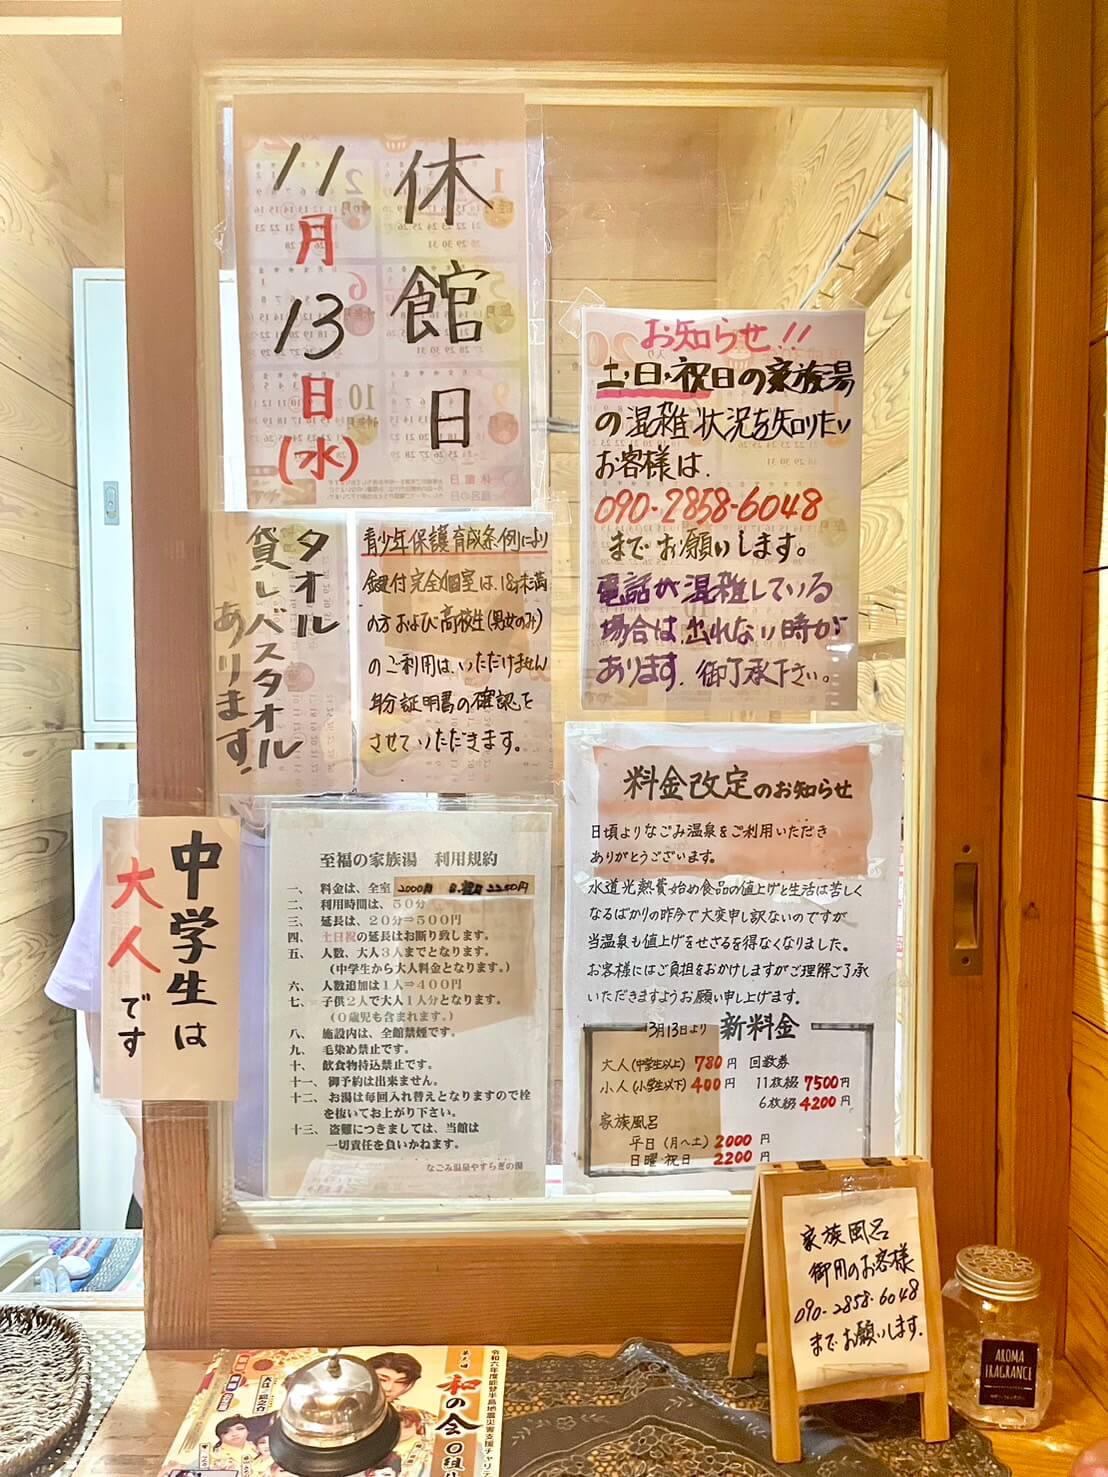 休館日
11月13日(水)
お知らせ!!
土・日・祝日の家族湯
の混雑状況を知りたい
お客様は、
090-2858-6048
までお願いします。
電話が混雑している
場合は、出れない時が
あります。御了承下さい。
タオル
貸しバスタオル
あります!
青少年保護育成条例により
鍵付完全個室は、18才未満
の方および高校生(男女のみ)
のご利用は、いただけません
身分証明書の確認を
させていただきます。
中学生は
大人です
至福の家族湯 利用規約
一、 料金は、全室 2000円 日・祝日2200円
二、 利用時間は、50分
三、 延長は、20分⇒500円
四、 土日祝の延長はお断り致します。
五、 人数、大人3人までとなります。
(中学生から大人料金となります。)
六、 人数追加は1人⇒400円
七、 子供2人で大人1人分となります。
(0歳児も含まれます。)
八、 施設内は、全館禁煙です。
九、 毛染め禁止です。
十、 飲食物持込禁止です。
十一、 御予約は出来ません。
十二、 お湯は毎回入れ替えとなりますので栓
を抜いてお上がり下さい。
十三、 盗難につきましては、当館は
一切責任を負いかねます。
なごみ温泉やすらぎの湯
料金改定のお知らせ
日頃よりなごみ温泉をご利用いただき
ありがとうございます。
水道光熱費始め食品の値上げと生活は苦しく
なるばかりの昨今で大変申し訳ないのですが
当温泉も値上げをせざるを得なくなりました。
お客様にはご負担をおかけしますがご理解ご了承
いただきますようお願い申し上げます。
3月13日より 新料金
大人(中学生以上) 780円 回数券
小人(小学生以下) 400円 11枚綴 7500円
6枚綴 4200円
家族風呂
平日(月〜土) 2000円
日曜 祝日 2200円
家族風呂
御用のお客様
090-2858-6048
までお願いします。
AROMA
FRAGRANCE
令和六年度能登半島地震災害支援チャリティ
和の会